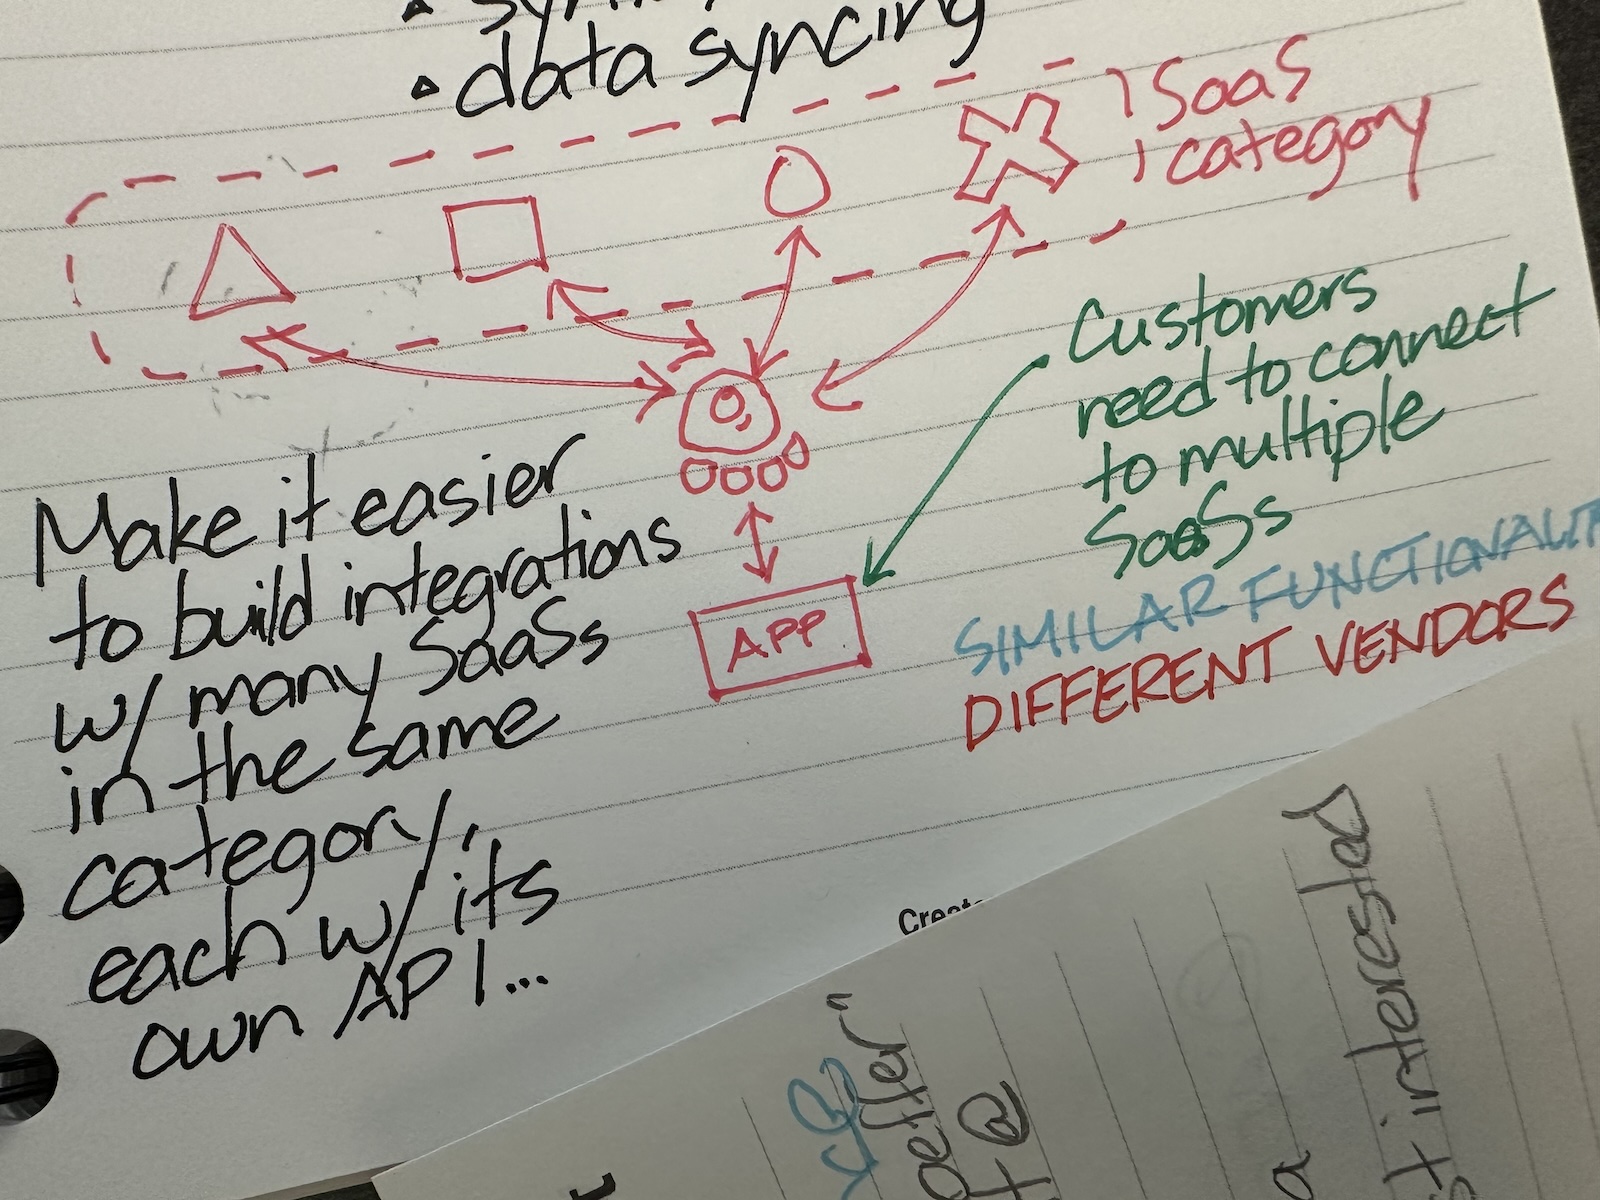 • data syncing
1 SaaS
1 category
Customers
need to connect
to multiple
SaaSs
Make it easier
to build integrations
w/ many SaaSs
in the same
category,
each w/ its
own API...
APP
SIMILAR
DIFFERENT VENDORS
interested
@
a